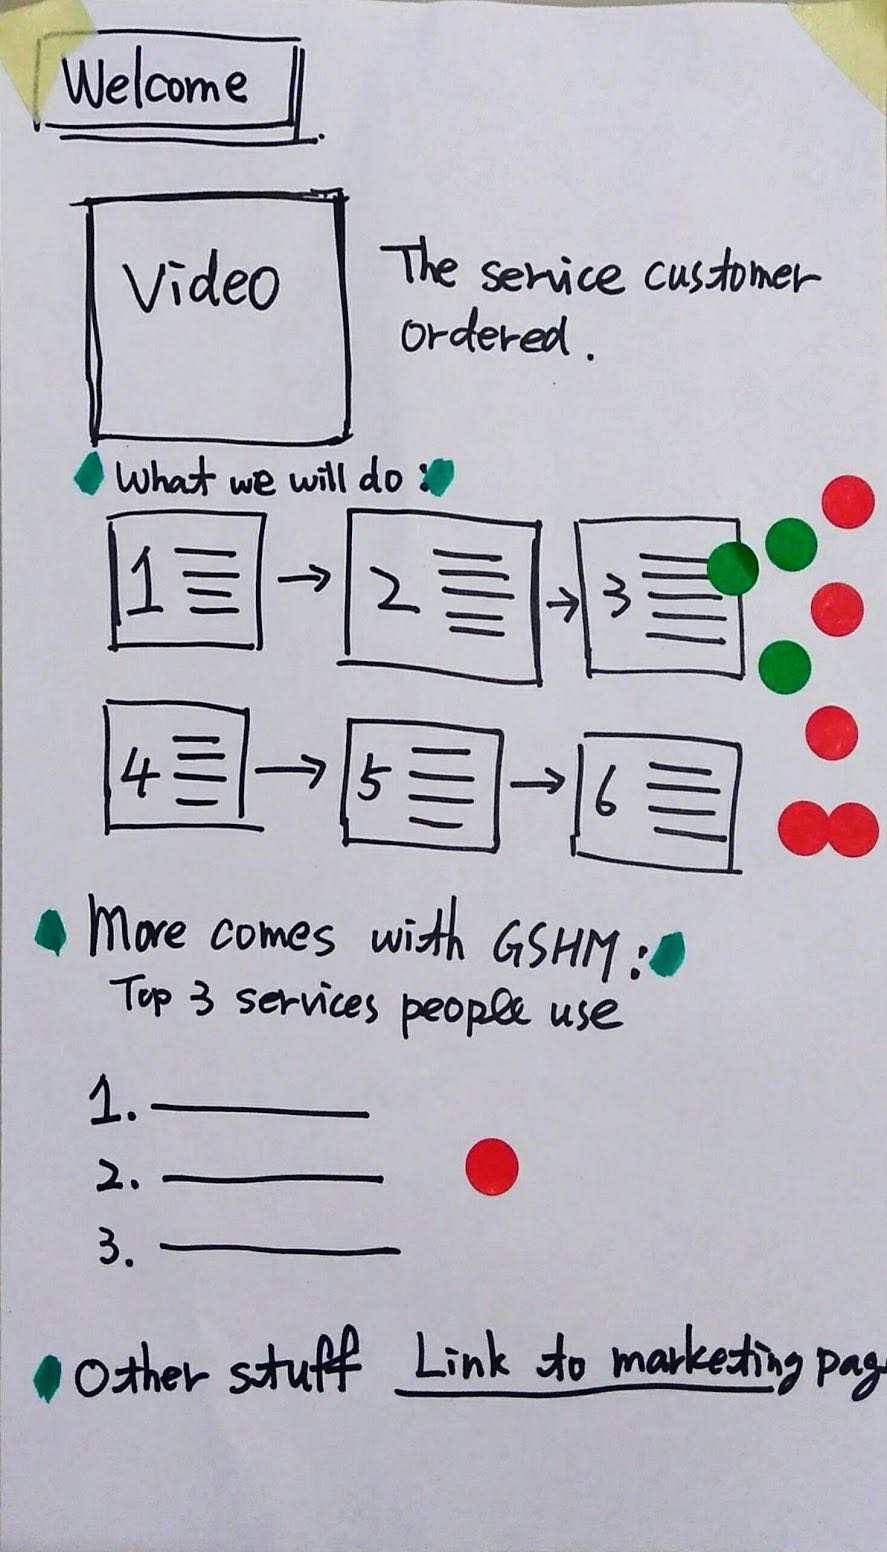 Welcome
Video
The service customer
ordered.
What we will do:
1 → 2 → 3
4 → 5 → 6
More comes with GSHM:
Top 3 services people use
1.
2.
3.
Other stuff Link to marketing pag